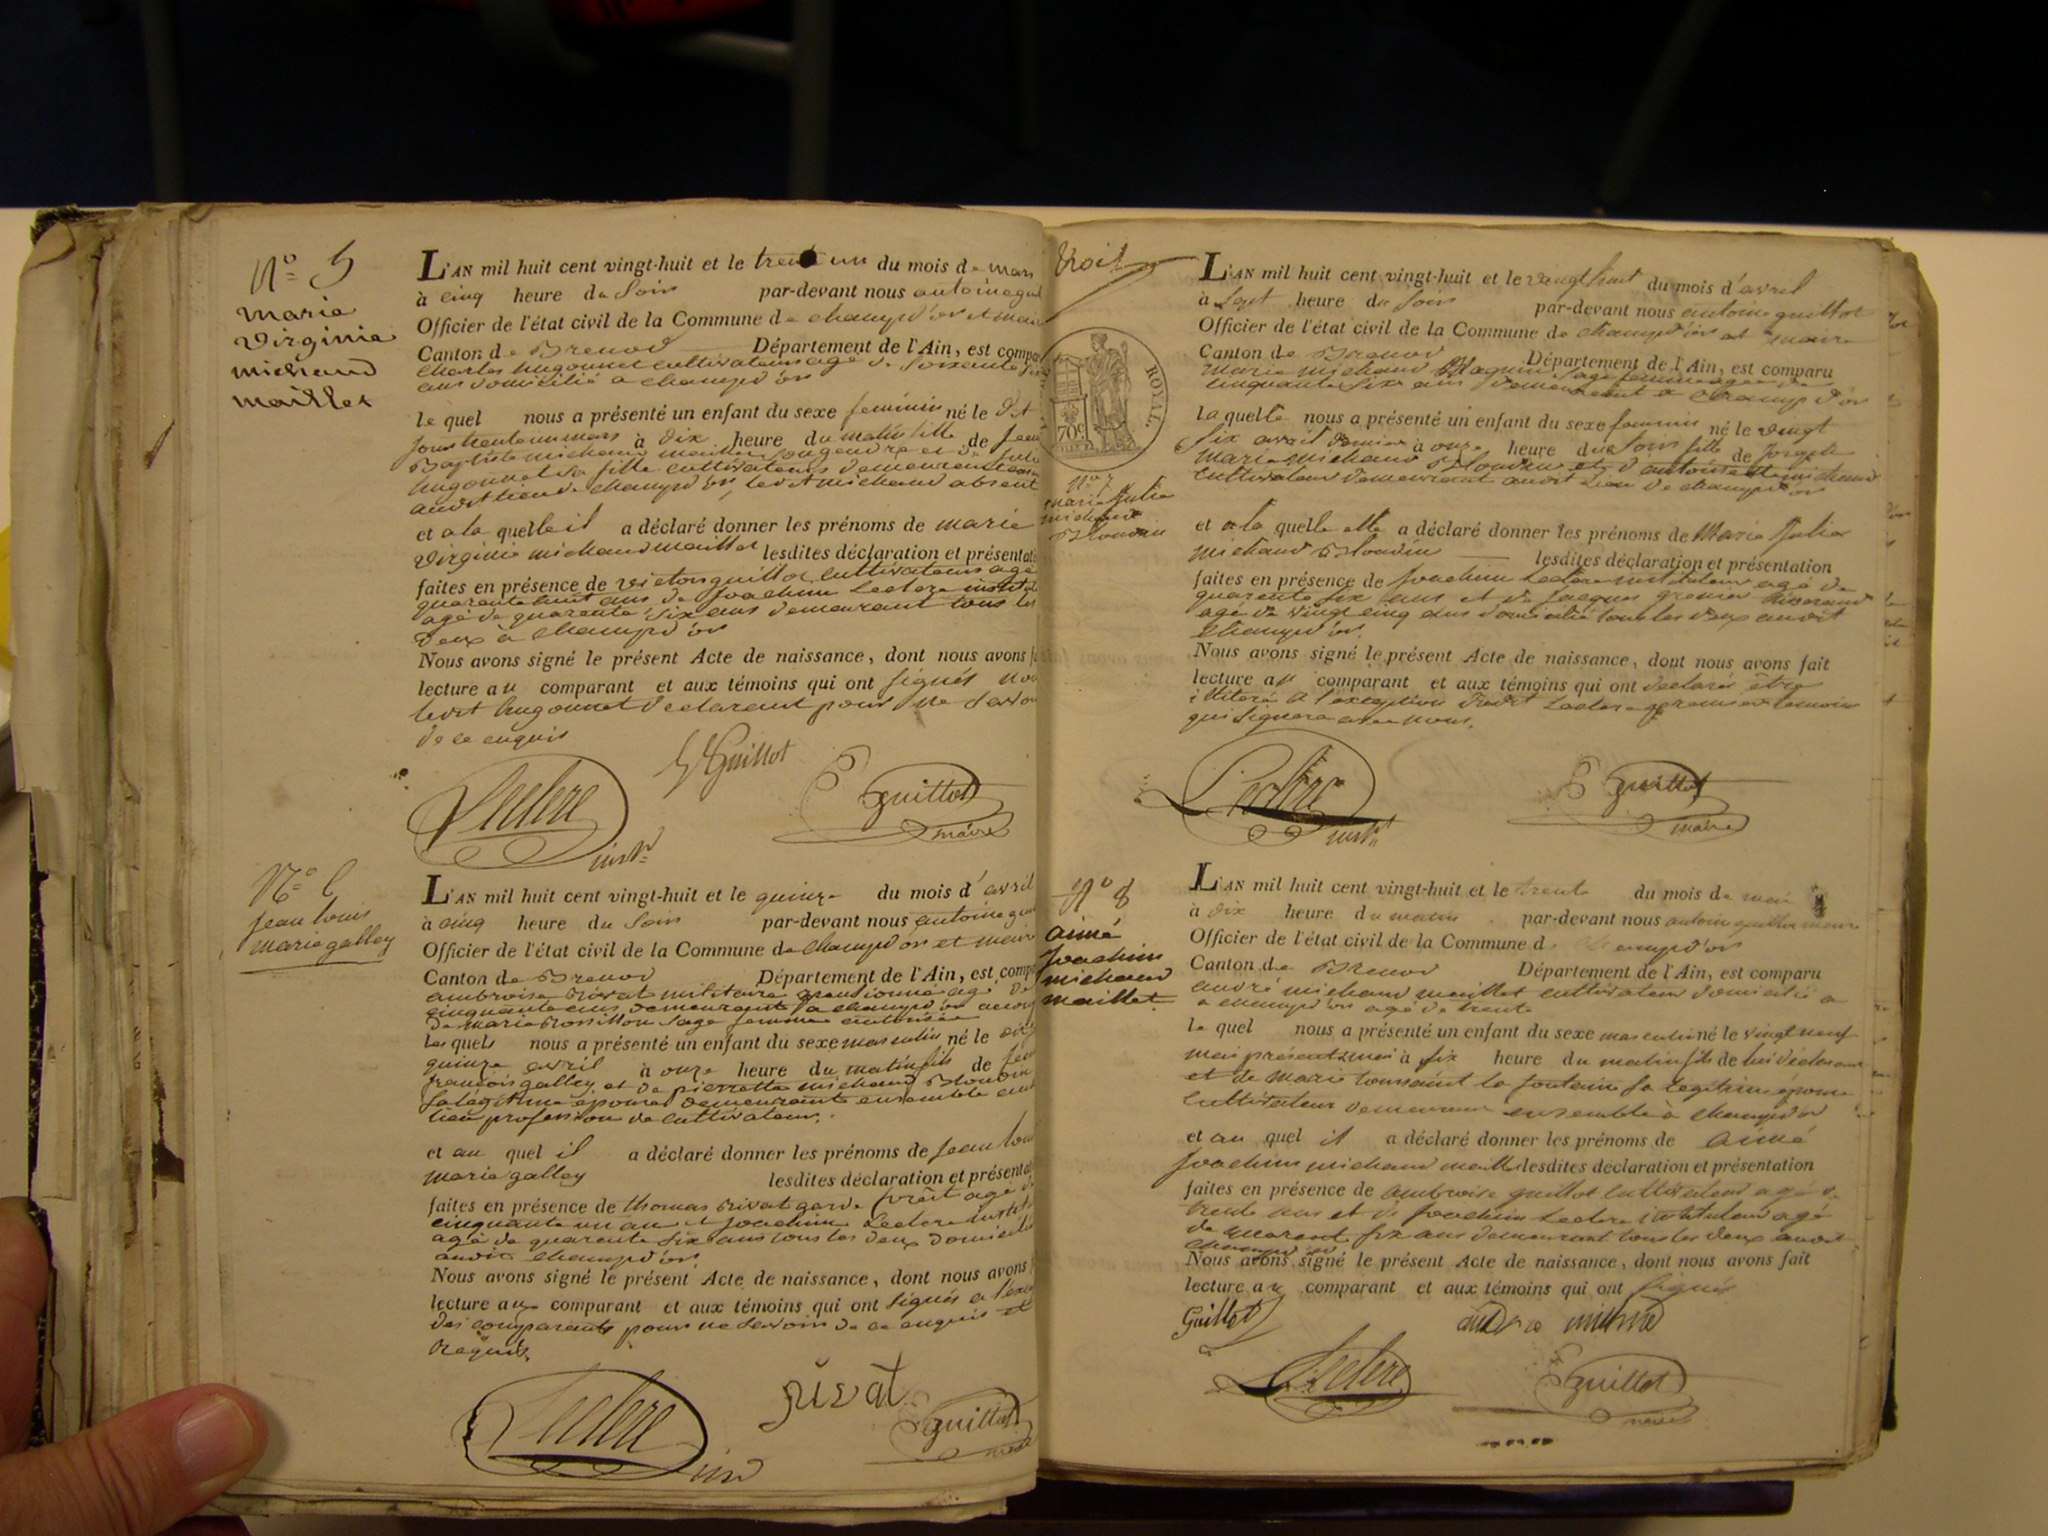 N.o 5
marie
virginie
michaud
maillet
L'AN mil huit cent vingt-huit et le trente un du mois de mars
à cinq heure du soir par-devant nous antoine
Officier de l'état civil de la Commune de champd'or et
Canton de Brenod Département de l'Ain, est
charles hugonnet cultivateur agé de soixante
ans domicilié a champd'or
le quel nous a présenté un enfant du sexe feminin né le dit
jour trente un mars à dix heure du matin fille de
Baptiste michaud maillet son gendre et de
hugonnet sa fille cultivateurs demeurent
audit lieu de champd'or, ledit michaud absent
et a la quelle il a déclaré donner les prénoms de marie
virginie michaud maillet lesdites déclaration et
faites en présence de victor guillot cultivateur agé
quarente huit ans de Joachim Leclerc
agé de quarente six ans demeurant tous les
deux à champd'or
Nous avons signé le présent Acte de naissance, dont nous avons
lecture au comparant et aux témoins qui ont signés non
ledit hugonnet declarant pour ne savoir
de ce enquis
Leclerc instr
Guillot
guillot
maire
N.o 6
jean louis
marie galley
L'AN mil huit cent vingt-huit et le quinze du mois d'avril
à cinq heure du soir par-devant nous antoine
Officier de l'état civil de la Commune de champd'or et maire
Canton de Brenod Département de l'Ain, est
ambroise privat militaire pensionné agé de
cinquante ans demeurant a champd'or
de marie Rossillon sage femme autorisée
les quels nous a présenté un enfant du sexe masculin né le
quinze avril à onze heure du matin fils de
francois galley et de pierrette michaud Blondin
sa légitime epouse demeurants ensemble
lieu profession de cultivateur.
et au quel il a déclaré donner les prénoms de Jean louis
marie galley lesdites déclaration et
faites en présence de thomas privat garde forêt agé
cinquante un an et Joachim Leclerc
agé de quarente six ans tous les deux domicilié
audit champd'or
Nous avons signé le présent Acte de naissance, dont nous avons
lecture aux comparant et aux témoins qui ont signés a
des comparants pour ne savoir de ce enquis et
requis.
Leclerc
privat
guillot
ROYAL
70c
N.o 7
marie Julie
michaud
Blondin
L'AN mil huit cent vingt-huit et le vingt huit du mois d'avril
à sept heure du soir par-devant nous antoine guillot
Officier de l'état civil de la Commune de champd'or et maire
Canton de Brenod Département de l'Ain, est comparu
marie michaud sage femme agée de
cinquante six ans demeurant a champd'or
la quelle nous a présenté un enfant du sexe feminin né le vingt
six avril dernier à onze heure du soir fille de Joseph
marie michaud Blondin et d'antoinette michaud
cultivateur demeurant audit Lieu de champd'or
et a la quelle elle a déclaré donner les prénoms de Marie Julie
michaud Blondin lesdites déclaration et présentation
faites en présence de Joachim Leclerc instituteur agé de
quarente six ans et de Jacques grenier tisserand
agé de vingt cinq ans domicilié tous les deux audit
champd'or.
Nous avons signé le présent Acte de naissance, dont nous avons fait
lecture au comparant et aux témoins qui ont declarés être
illiteré a l'exception dudit Leclerc premier temoin
qui signera avec nous.
Leclerc instr
guillot
maire
N.o 8
aimé
Joachim
michaud
maillet
L'AN mil huit cent vingt-huit et le trente du mois de mai
à dix heure du matin par-devant nous antoine guillot maire
Officier de l'état civil de la Commune de champd'or
Canton de Brenod Département de l'Ain, est comparu
andré michaud maillet cultivateur domicilié a
a champd'or agé de trente
le quel nous a présenté un enfant du sexe masculin né le vingt neuf
mai présent mois à six heure du matin fils de lui déclarant
et de marie toussaint la fontaine sa légitime épouse
cultivateur demeurant ensemble à champd'or
et au quel il a déclaré donner les prénoms de aimé
Joachim michaud maillet lesdites déclaration et présentation
faites en présence de ambroise guillot cultivateur agé de
trente ans et de Joachim Leclerc instituteur agé
de quarent six ans demeurant tous les deux audit
champd'or
Nous avons signé le présent Acte de naissance, dont nous avons fait
lecture au comparant et aux témoins qui ont signés
Guillot
Leclerc
guillot
maire